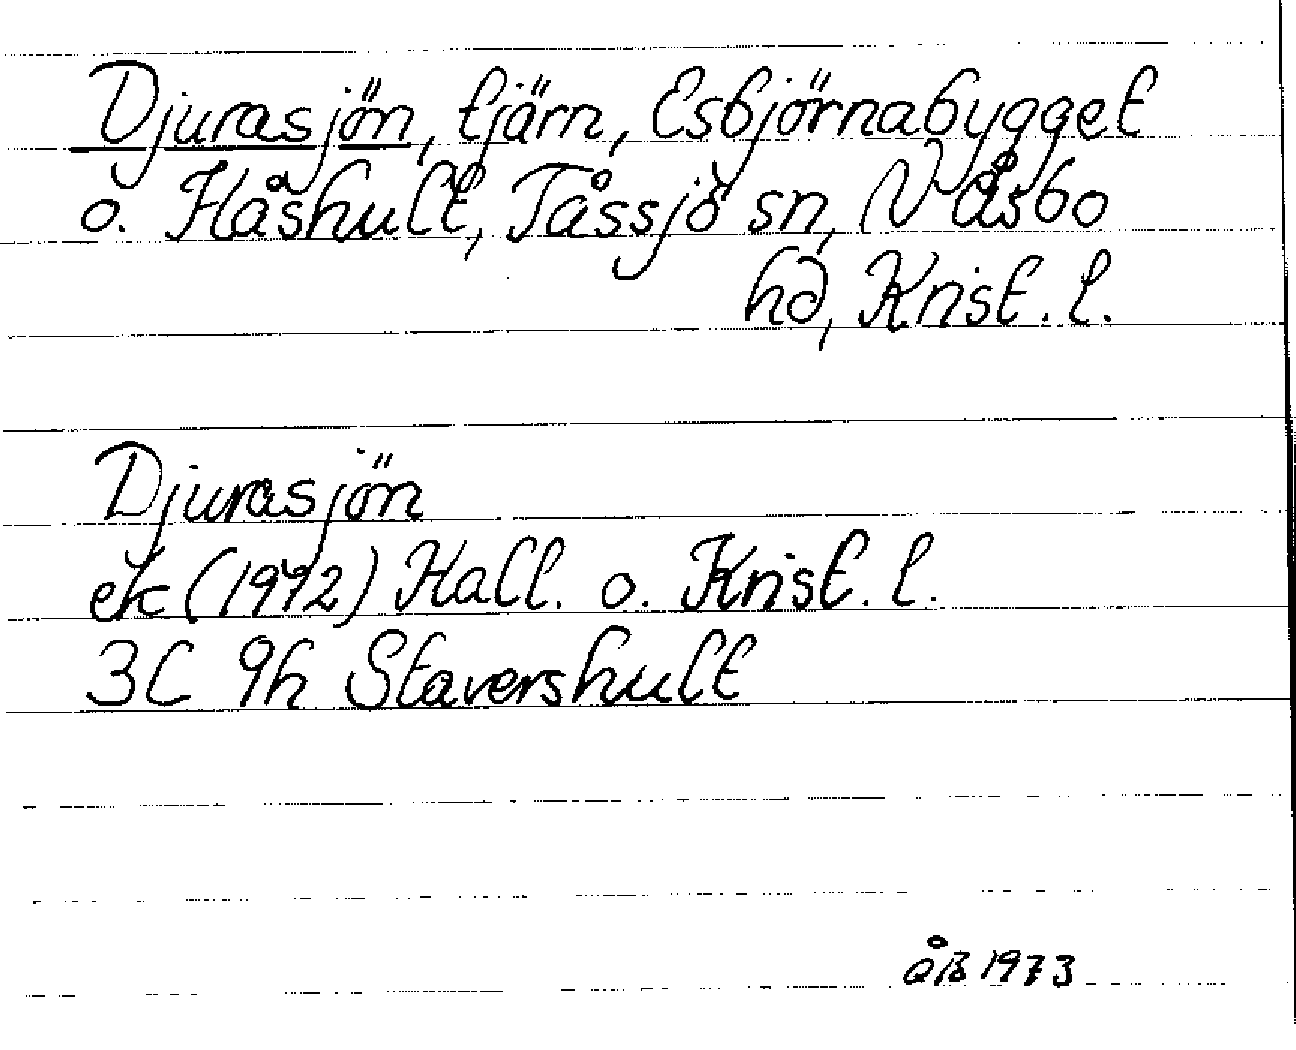 Djurasjön, tjärn, Esbjörnabygget
o. Håshult, Tåssjö sn, N Åsbo
hd, Krist. l.
Djurasjön
ek (1972) Hall. o. Krist. l.
3C 9h Stavershult
åB 1973